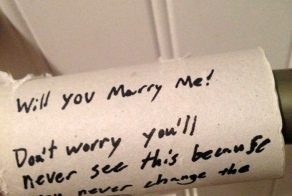 Will you Marry Me!
Don't worry you'll
never see this because
never change the